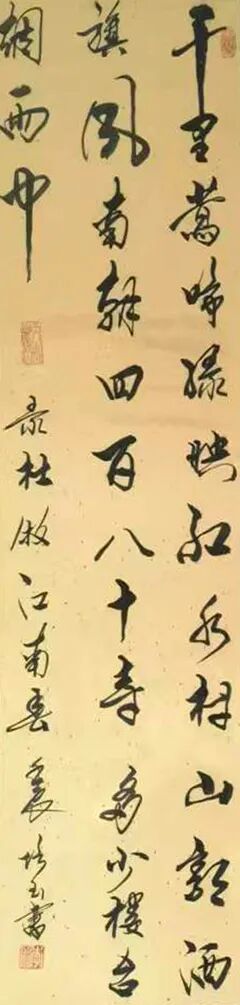 千里莺啼绿映红水村山郭酒
旗风南朝四百八十寺多少樓台
烟雨中
录杜牧江南春 書